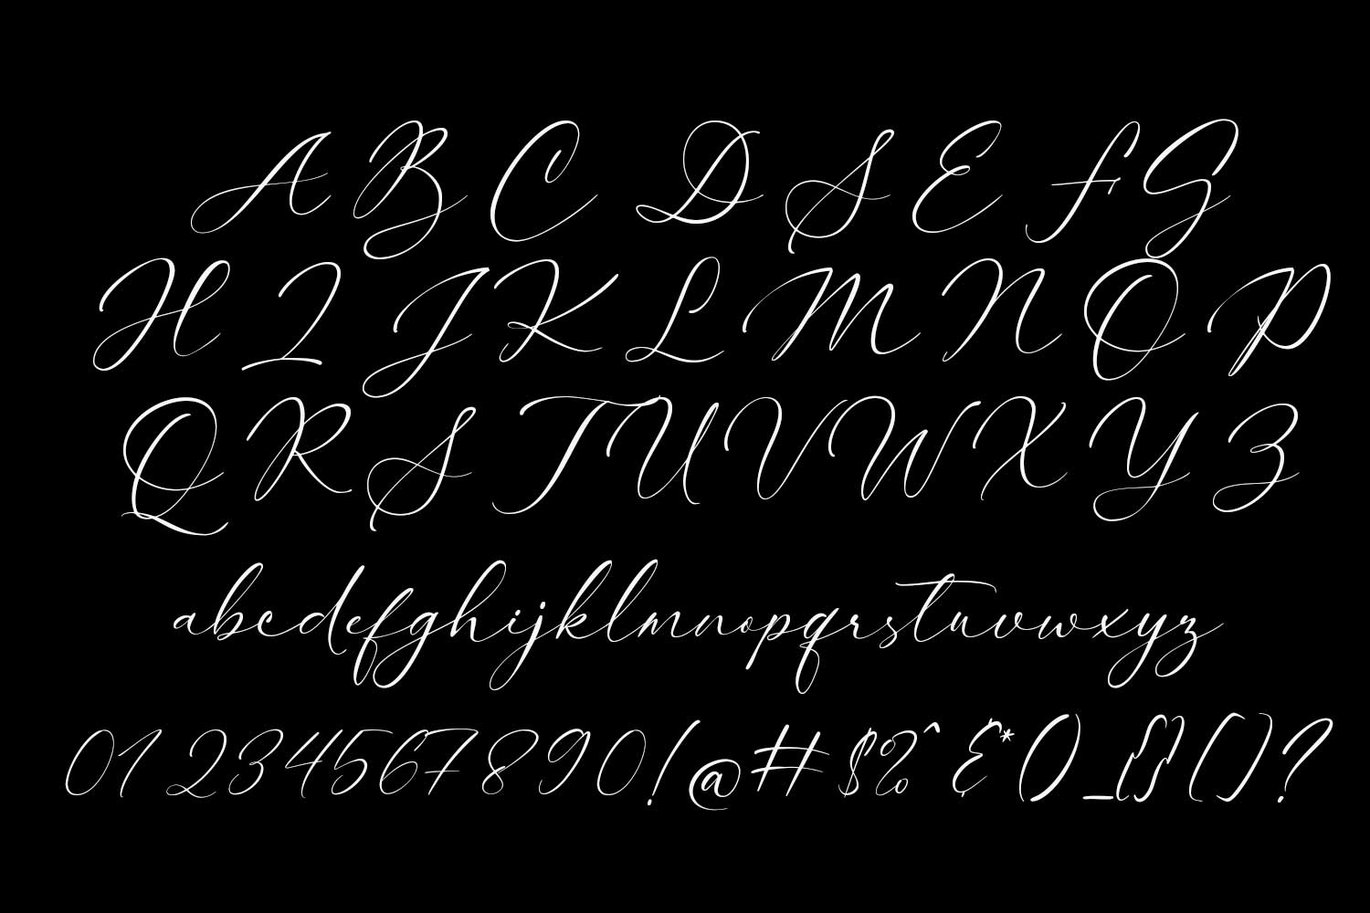 A B C D S E F G
H I J K L M N O P
Q R S T U V W X Y Z
abcdefghijklmnopqrstuvwxyz
01234567890!@#$%^&*()_{}[]?